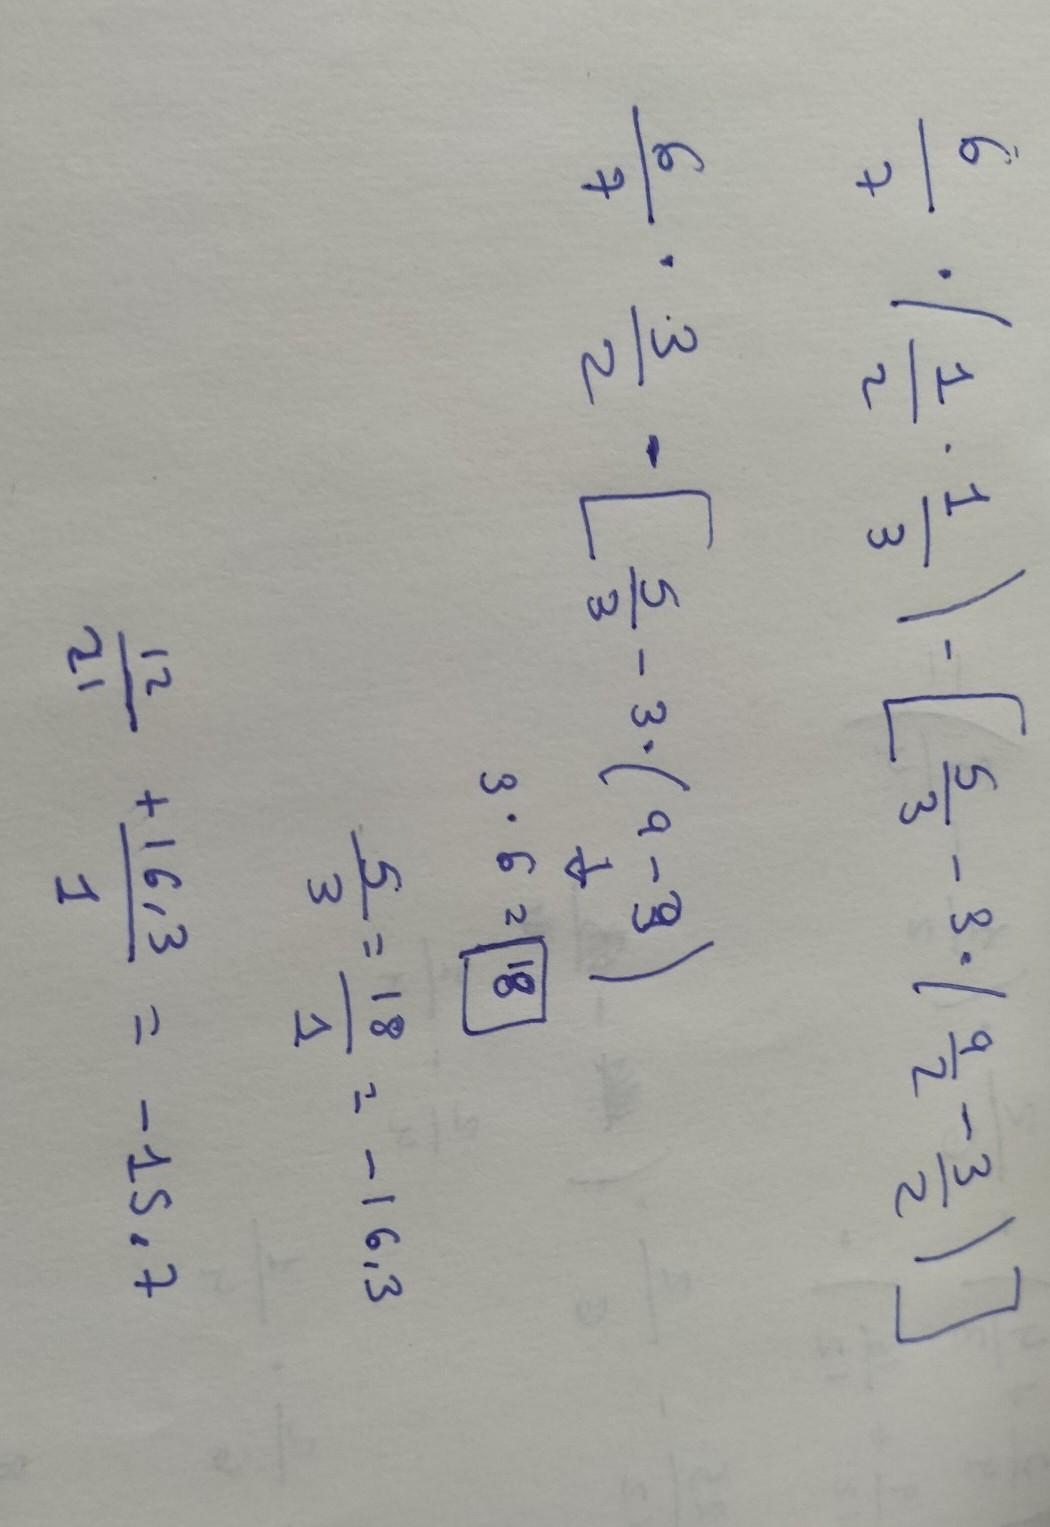 6/7 · (1/2 · 1/3) - [5/3 - 3 · (9/2 - 3/2)]
6/7 · 3/2 - [5/3 - 3 · (9 - 3)
3 · 6 = 18
5/3 = 18/1 = -16,3
12/21 + 16,3/1 = -15,7